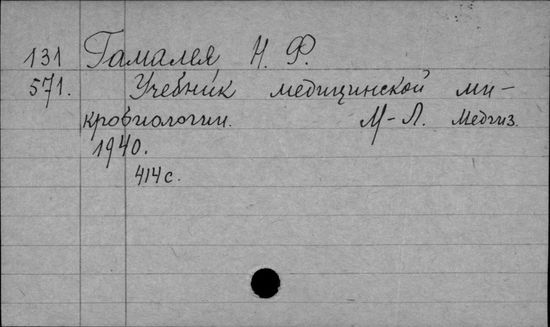 131 Гамалея Н. Ф.
571. Учебник медицинской ми-
кробиологии. М-Л. Медгиз.
1940.
414 с.